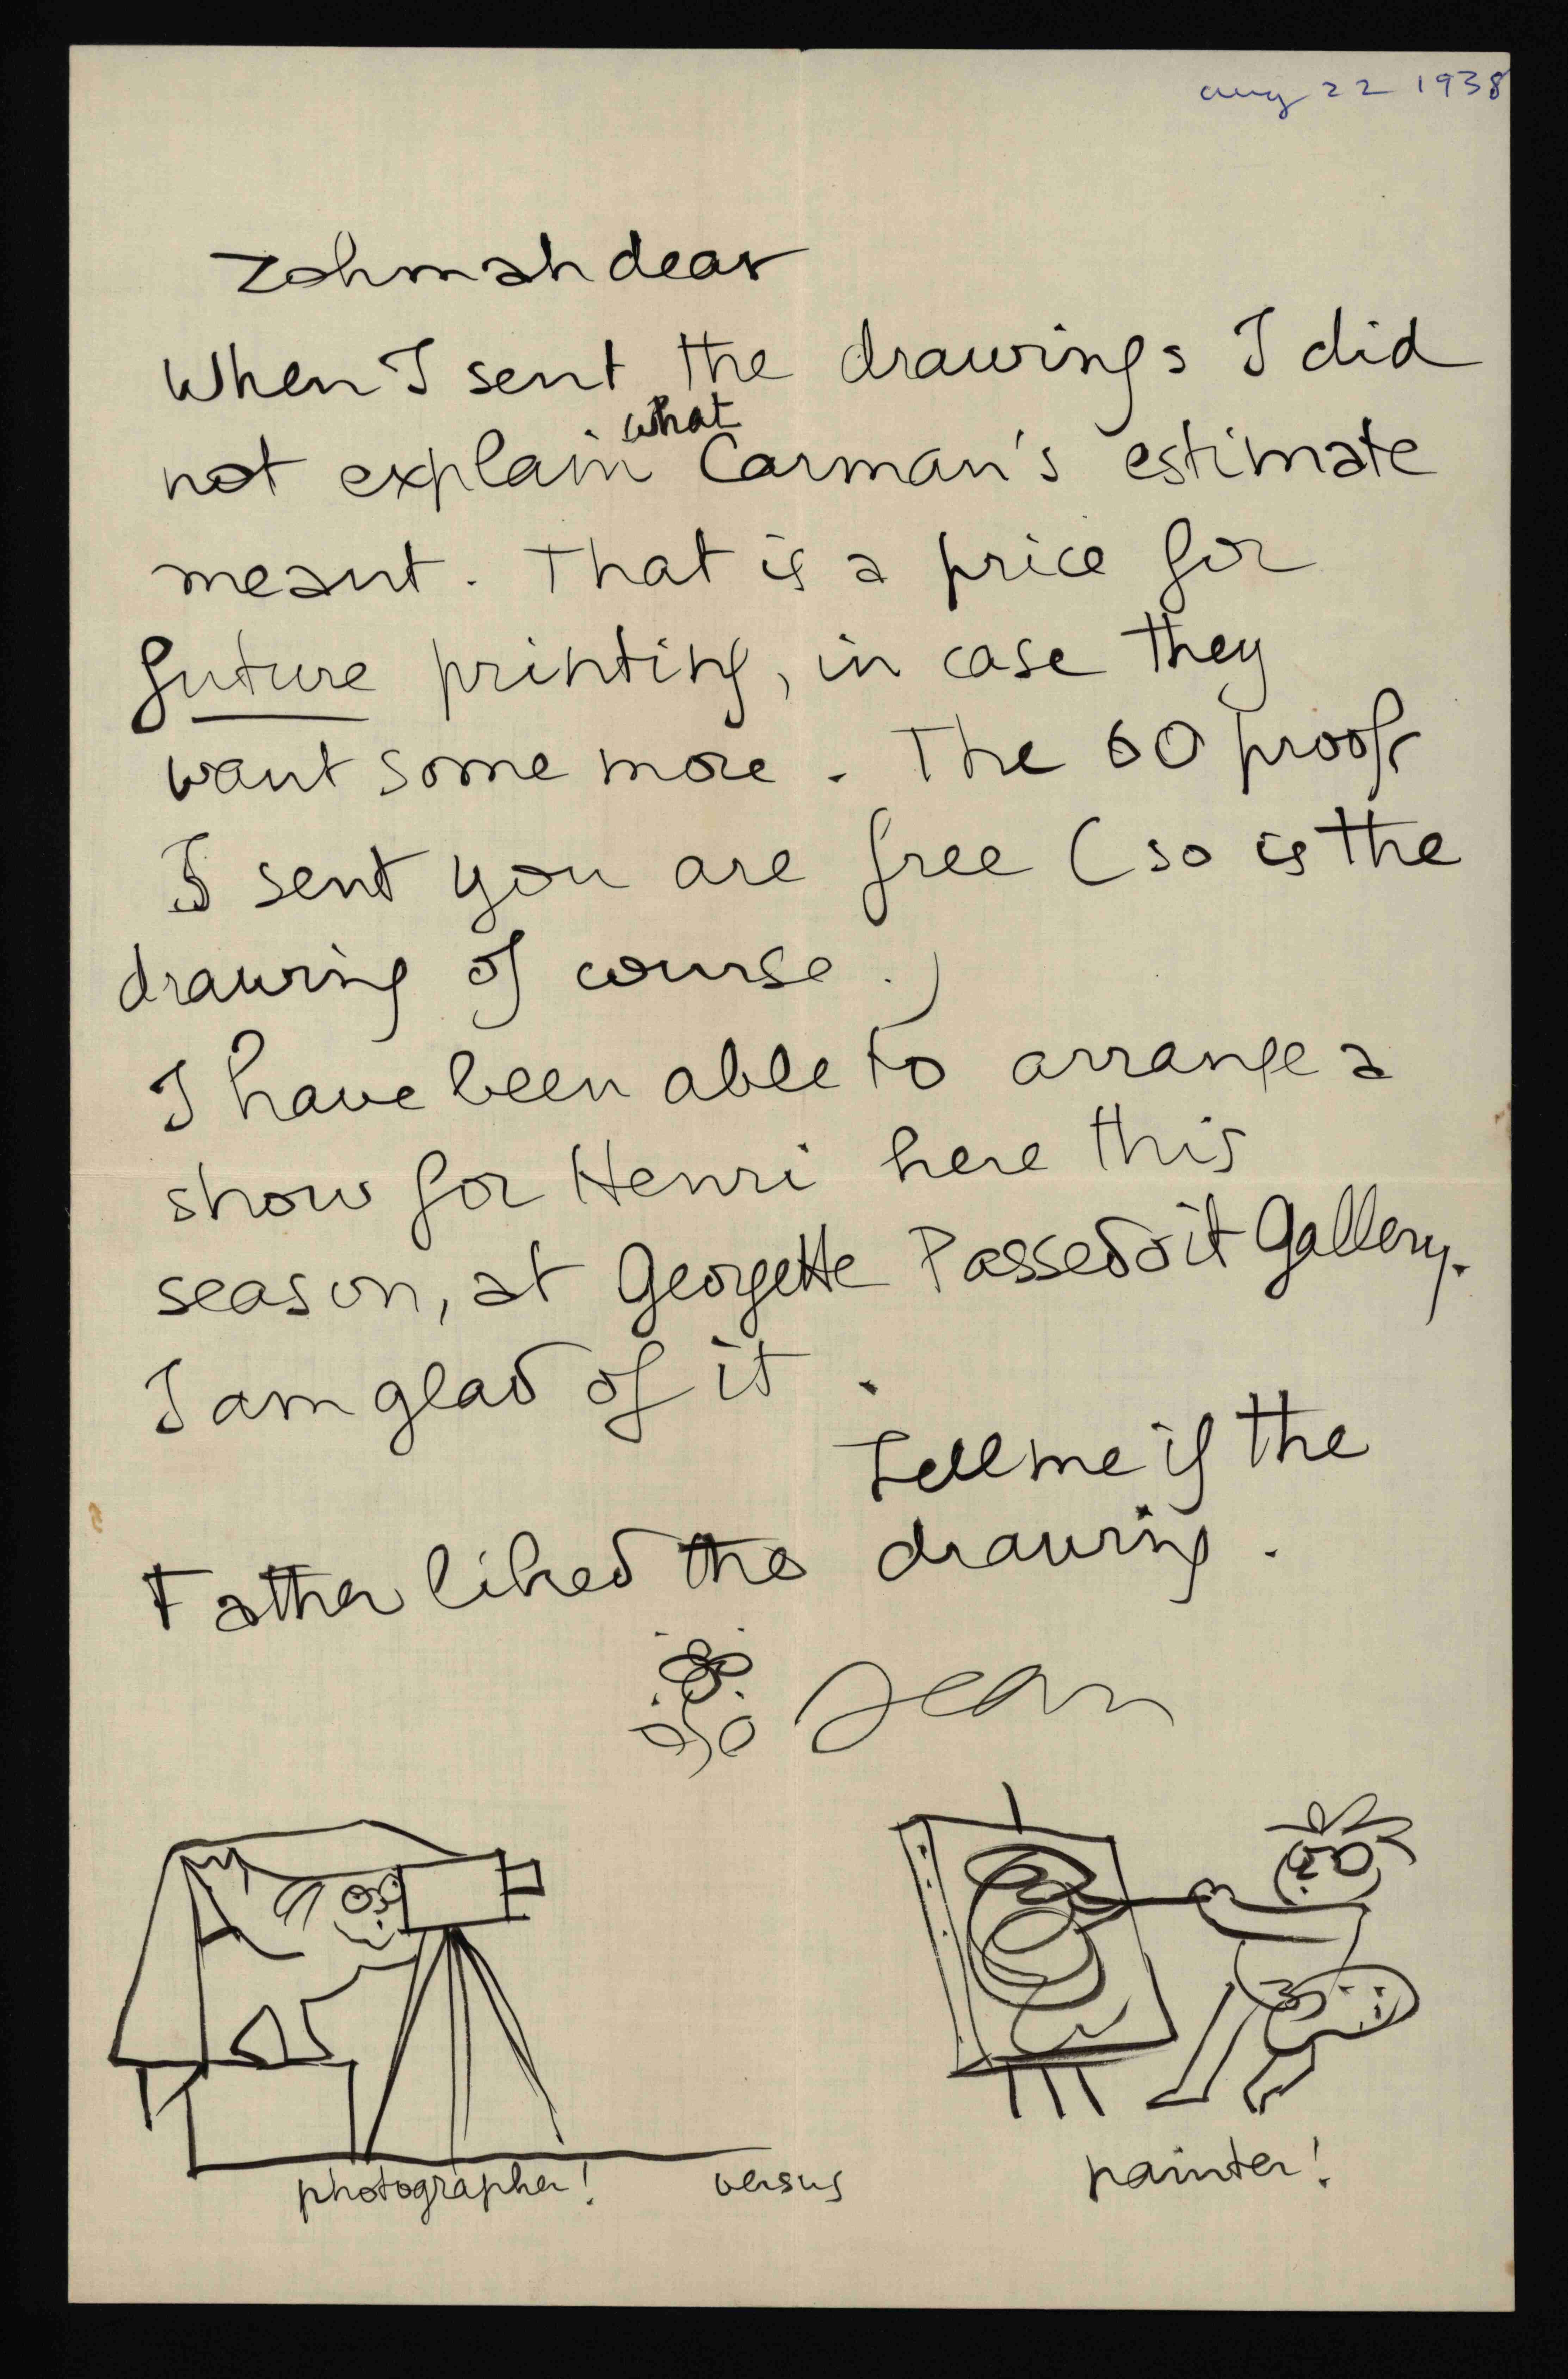 aug 22 1938
Zohmah dear
When I sent the drawings I did
what
not explain Carman's estimate
meant. That is a price for
future printing, in case they
want some more. The 60 proofs
I sent you are free (so is the
drawing of course.)
I have been able to arrange a
show for Henri here this
season, at Georgette Passedoit Gallery.
I am glad of it.
Tell me if the
Father liked the drawing.
Jean
photographer! versus painter!